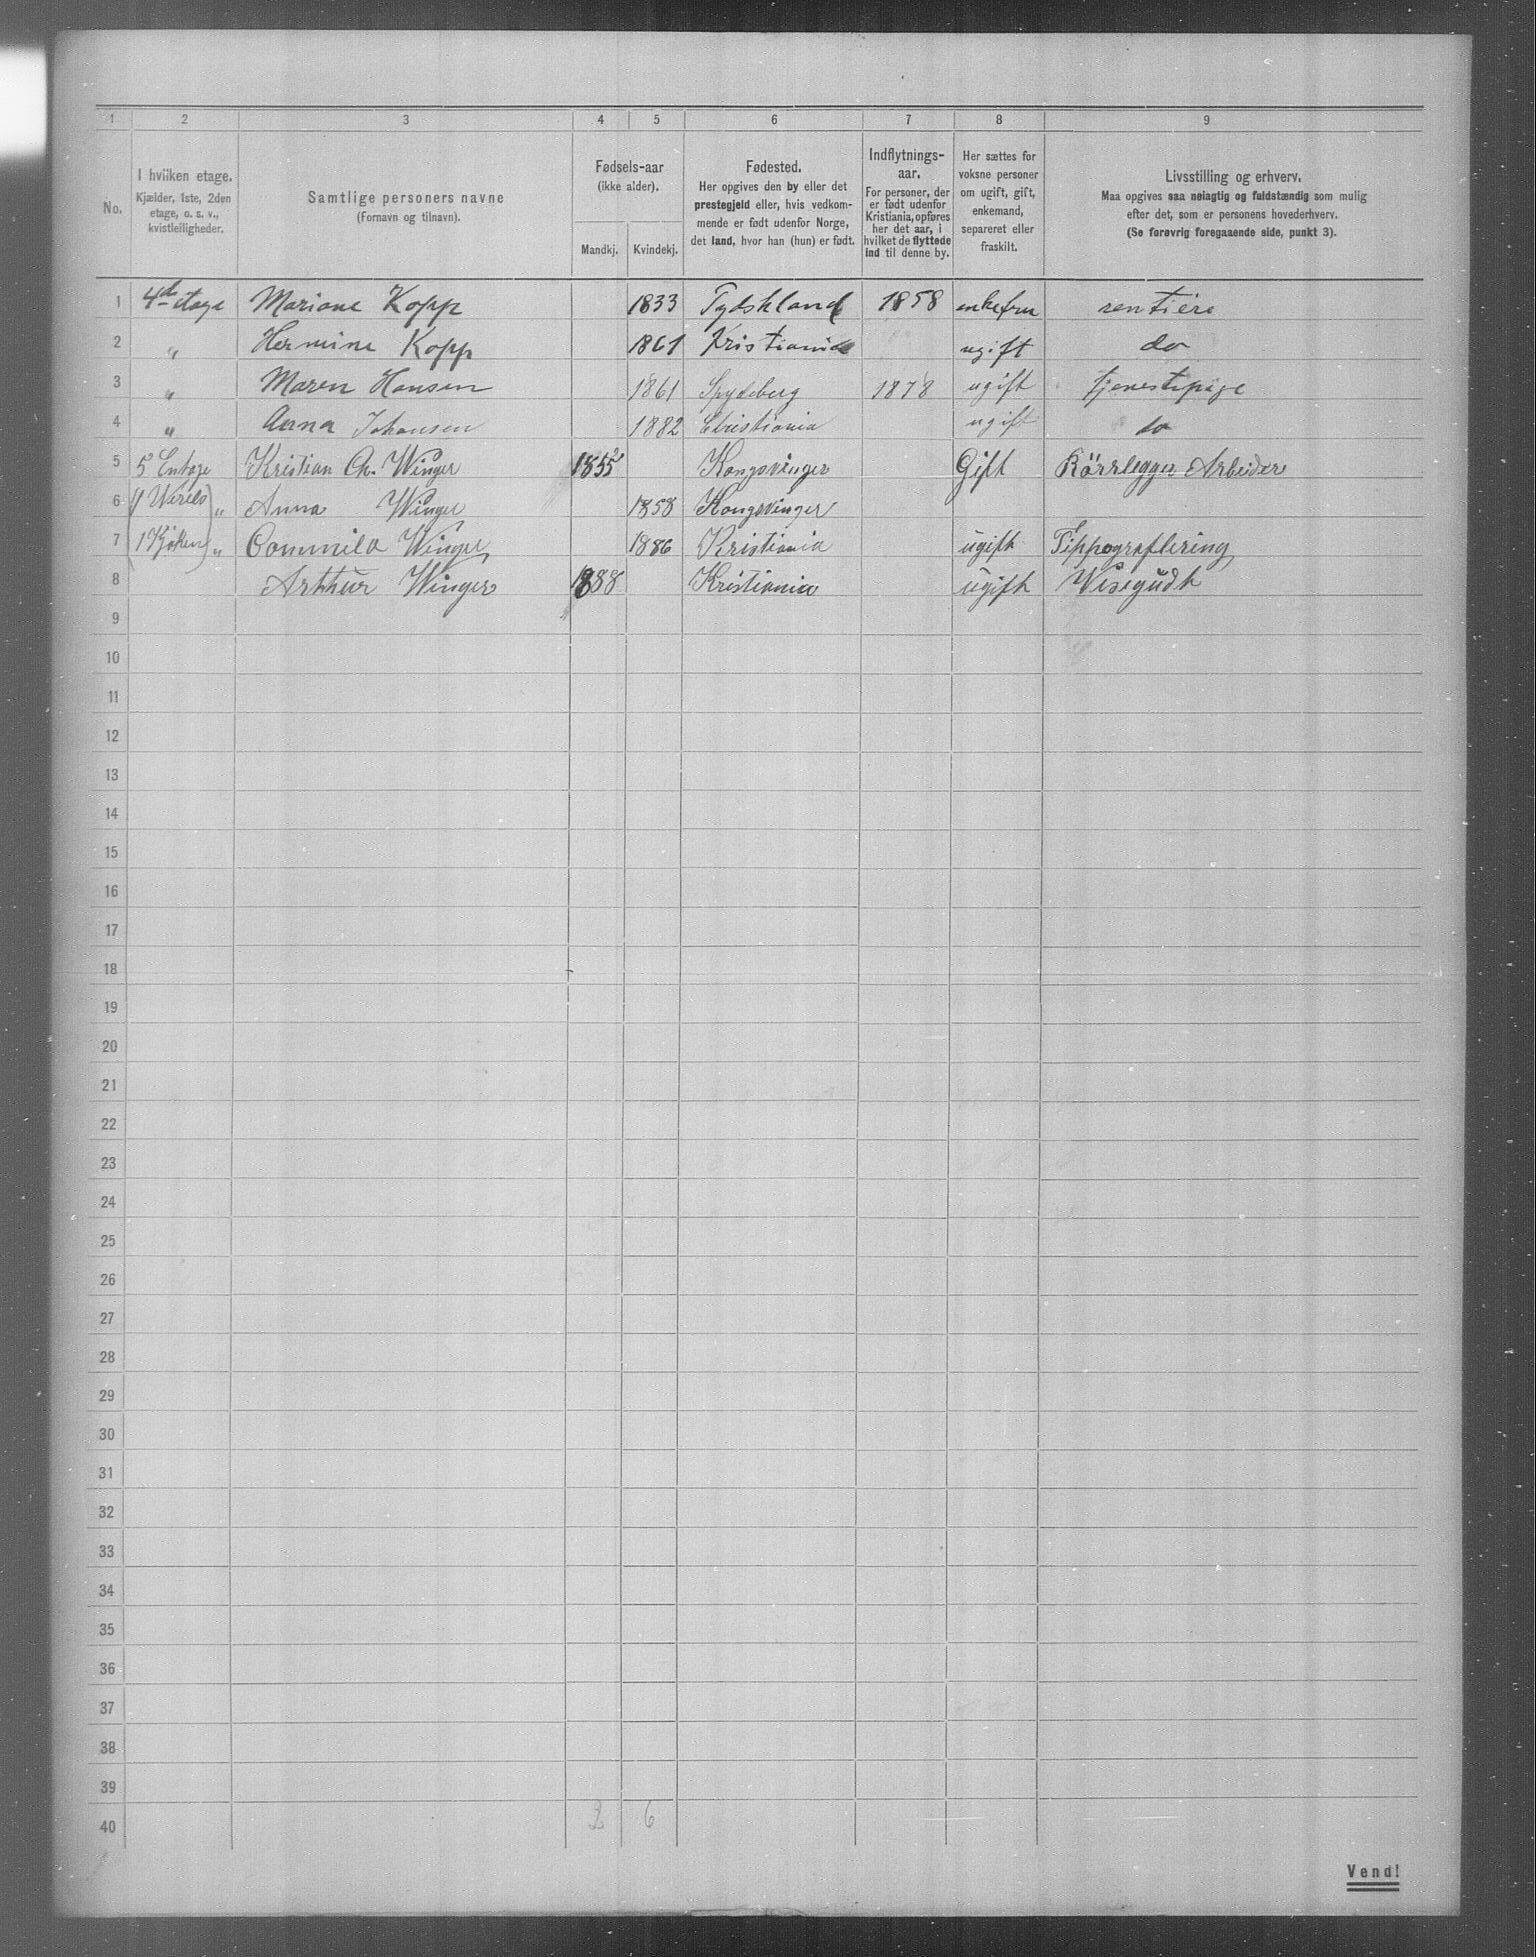 1 2 3 4 5 6 7 8 9
No.
I hvilken etage.
Kjælder, 1ste, 2den
etage, o. s. v.,
kvistleiligheder.
Samtlige personers navne
(Fornavn og tilnavn).
Fødsels-aar
(ikke alder).
Mandkj. Kvindekj.
Fødested.
Her opgives den by eller det
prestegjeld eller, hvis vedkom-
mende er født udenfor Norge,
det land, hvor han (hun) er født.
Indflytnings-
aar.
For personer, der
er født udenfor
Kristiania, opføres
her det aar, i
hvilket de flyttede
ind til denne by.
Her sættes for
voksne personer
om ugift, gift,
enkemand,
separeret eller
fraskilt.
Livsstilling og erhverv.
Maa opgives saa nøiagtig og fuldstændig som mulig
efter det, som er personens hovederhverv.
(Se forøvrig foregaaende side, punkt 3).
1 4d etage Mariane Kopp 1833 Tydskland 1858 enkefru rentiere
2 " Hermine Kopp 1861 Kristiania ugift do
3 " Maren Hansen 1861 Spydeberg 1878 ugift tjenestepige
4 " Anna Johansen 1882 Christiania ugift do
5 5 Entage Kristian Ch. Winger 1855 Kongsvinger Gift Rörrlegger Arbeider
6 " Anna Winger 1858 Kongsvinger
7 1 Kjøken " Commila Winger 1886 Kristiania ugift Tippograflering
8 Arthur Winger 1888 Kristiania ugift Visegudt
9
10
11
12
13
14
15
16
17
18
19
20
21
22
23
24
25
26
27
28
29
30
31
32
33
34
35
36
37
38
39
40 2 6
Vend!